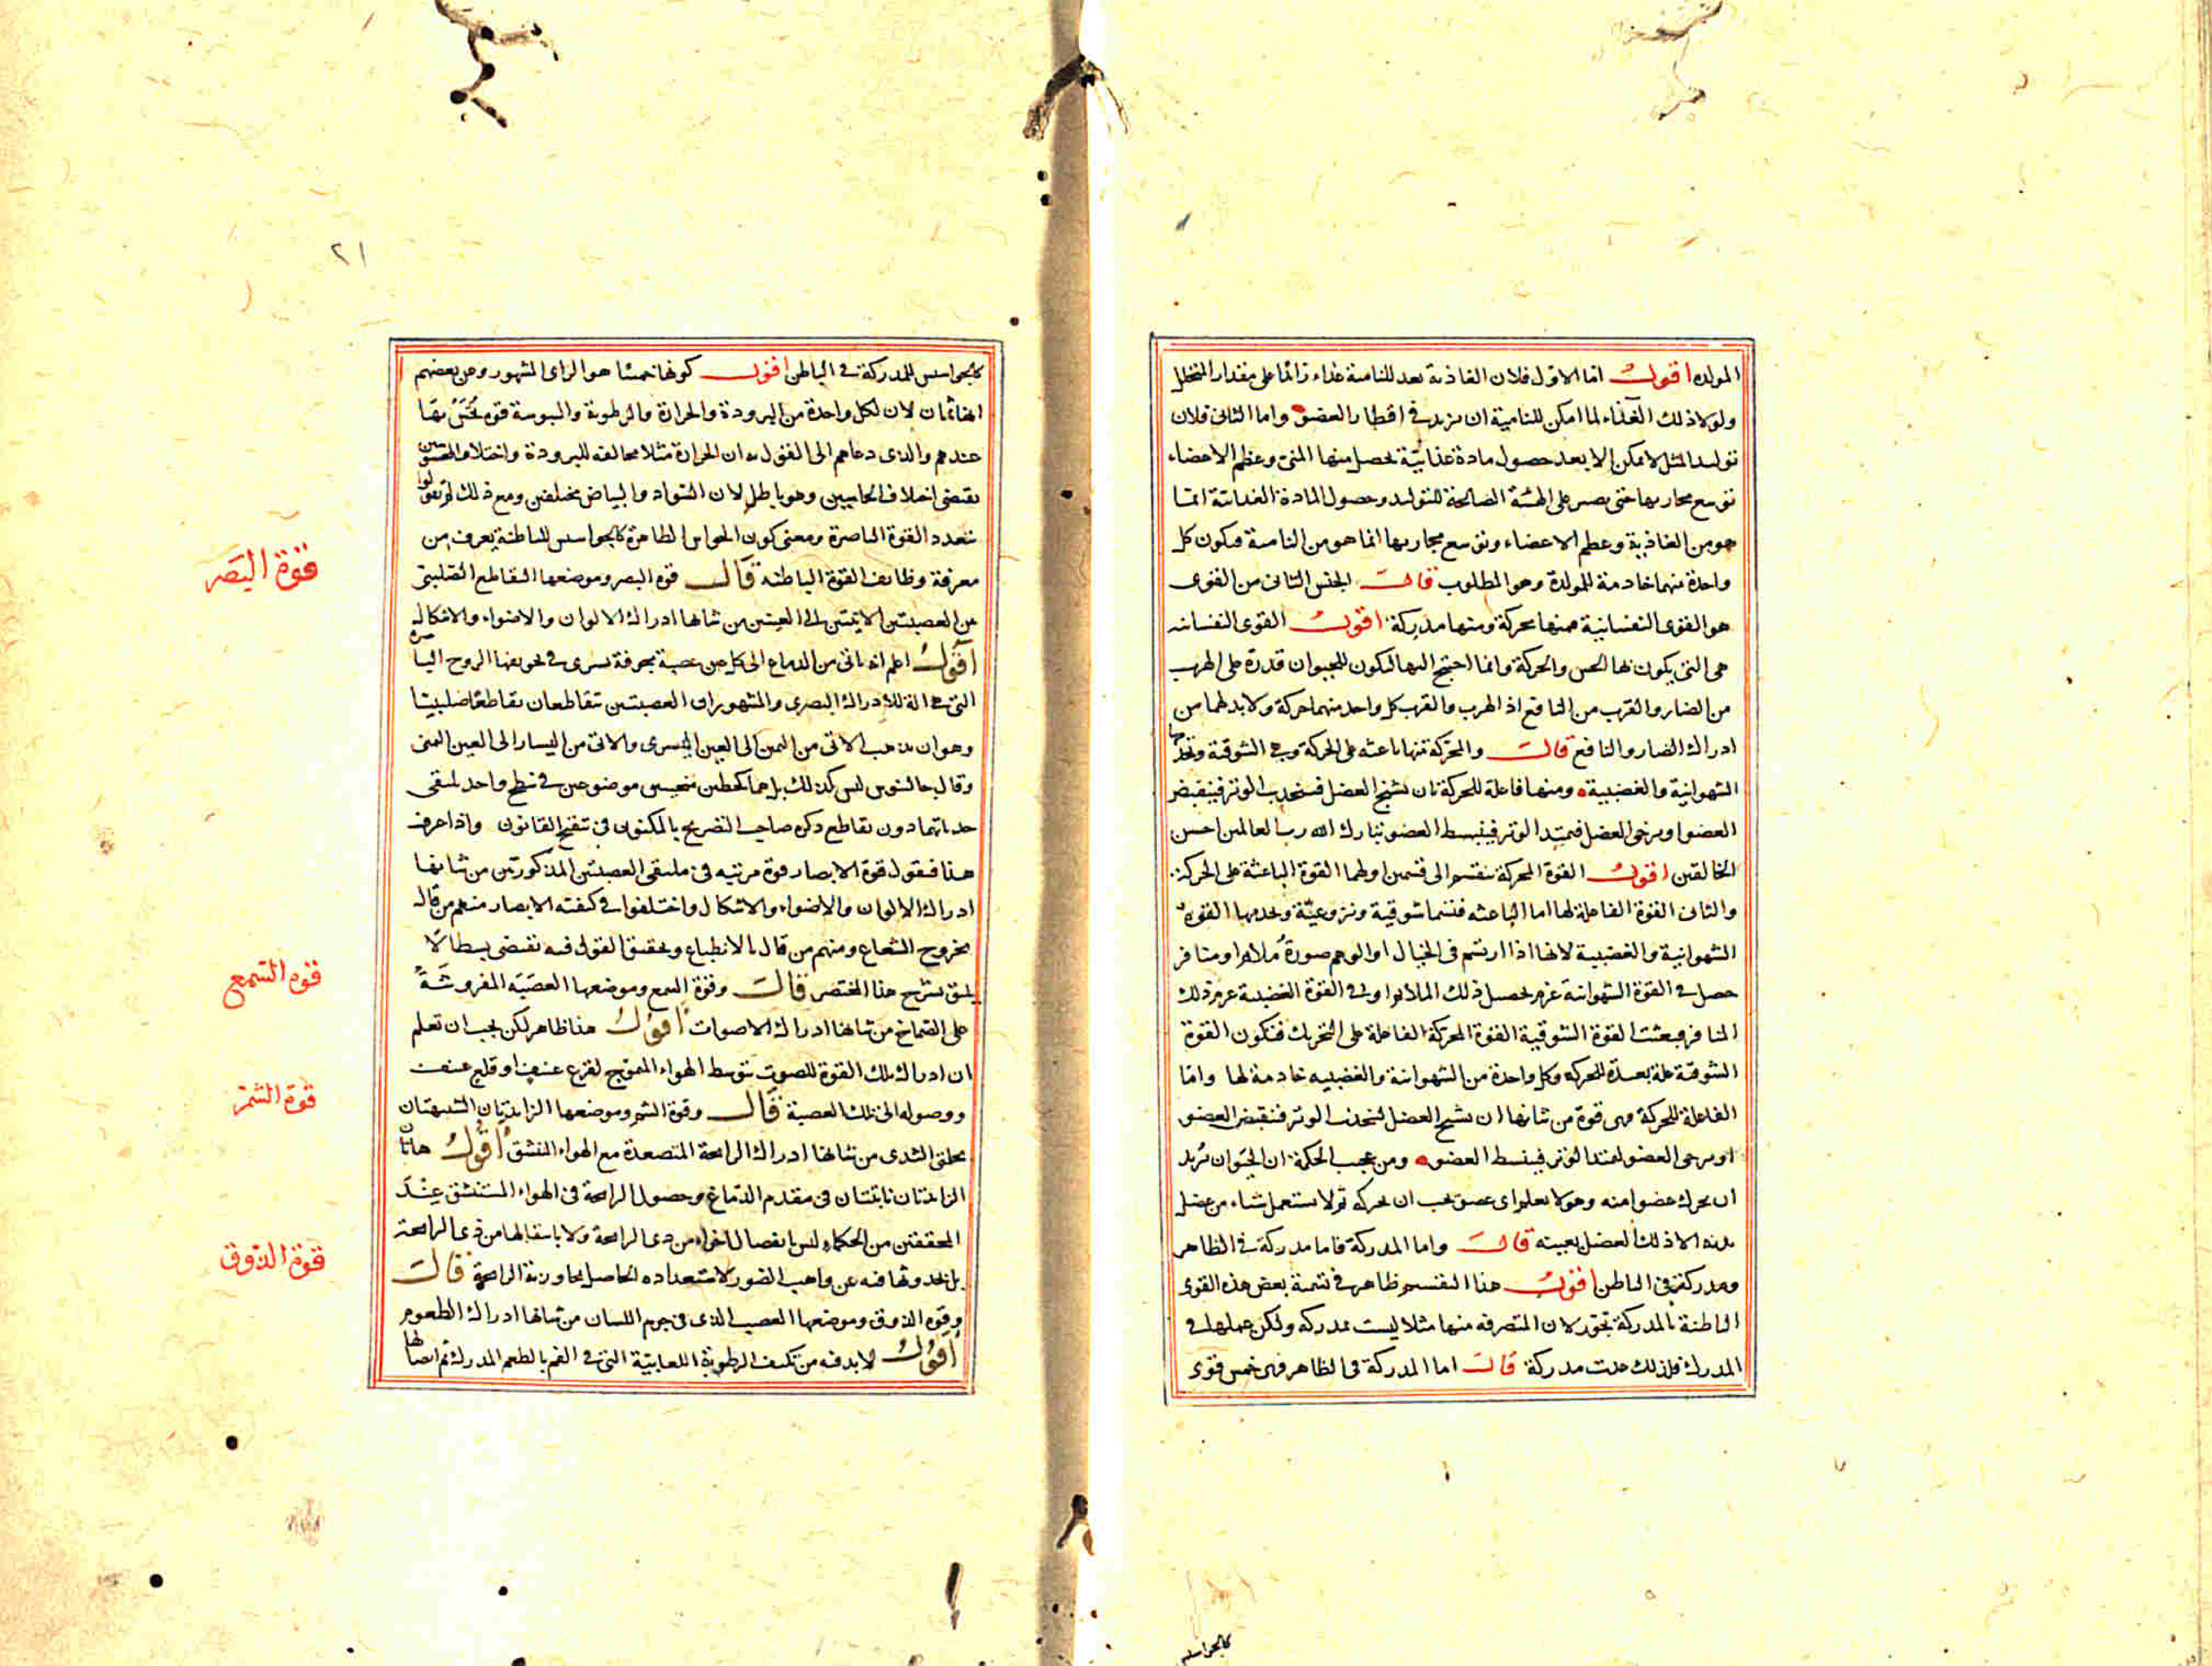 المولده اقول اما الاول فلان الغاذية تعد للنامية غذاء زائدا على مقدار المتحلل
ولولا ذلك الغذاء لما امكن للنامية ان تزيد في اقطار العضو واما الثانى فلان
توليد المثل لا يمكن الا بعد حصول مادة غذائية يحصل منها المنى وعظم الاعضاء
توسع مجاريها حتى يصير على الهيئة الصالحة للتوليد وحصول المادة الغذائية انما
هو من الغاذية وعظم الاعضاء وتوسع مجاريها انما هو من النامية فيكون كل
واحدة منهما خادمة للمولدة وهو المطلوب قال الجنس الثانى من القوى
هو القوى النفسانية فمنها محركة ومنها مدركة اقول القوى النفسانيه
هى التى يكون بها الحس والحركة وانما احتيج اليها ليكون للحيوان قدرة على الهرب
من الضار والقرب من النافع اذ الهرب والقرب كل واحد منهما حركة ولا بد لهما من
ادراك الضار والنافع قال والمحركة منها باعثه على الحركة وهى الشوقية وتخدمها
الشهوانية والغضبية ومنها فاعلة للحركة بان تشنج العضل فينجذب الوتر فينقبض
العضو او يرخى العضل فيمتد الوتر فينبسط العضو تبارك الله رب العالمين احسن
الخالقين اقول القوة المحركة تنقسم الى قسمين اولهما القوة الباعثة على الحركة
والثانى القوة الفاعلة لها اما الباعثه فتسما شوقية ونزوعية ويخدمها القوة
الشهوانية والغضبية لانها اذا ارتسم فى الخيال او الوهم صورة ملائم او منافر
حصل فى القوة الشهوانية عزم تحصيل ذلك الملائم او فى القوة الغضبية عزم ذلك
المنافر فبعثت القوة الشوقية القوة المحركة الفاعلة على التحريك فتكون القوة
الشوقية علة بعيدة للتحريك وكل واحدة من الشهوانية والغضبيه خادمة لها واما
الفاعلة للحركة فهى قوة من شانها ان تشنج العضل لينجذب الوتر فينقبض العضو
او يرخى العضو ليمتد الوتر فينبسط العضو ومن عجيب الحكمة ان الحيوان يريد
ان يحرك عضوا منه وهو لا يعلم اى عضو يجب ان يحركه ثم لا يستعمل شياء من عضل
بدنه الا ذلك العضل بعينه قال واما المدركة فاما مدركة فى الظاهر
ومدركة فى الباطن اقول هذا التقسيم ظاهر فى تسمية بعض هذه القوى
الباطنة بالمدركة تجوز لان المتصرفه منها مثلا ليست بمدركه ولكن عملها فى
المدرك فلذلك عدت مدركة قال اما المدركة فى الظاهر فهى خمس قوى
كالجواسيس
٢١
كالجواسيس للمدركة فى الباطن اقول كونها خمسا هو الراى المشهور وعن بعضهم
انها ثمان لان لكل واحدة من البرودة والحرارة والرطوبة واليبوسة قوة تختص بها
عندهم والذى دعاهم الى القول به ان الحرارة مثلا مخالفه للبرودة واختلاف المحسوسين
يقتضى اختلاف الحاسين وهو باطل لان السواد والبياض مختلفين ومع ذلك لم يقولوا
بتعدد القوة الباصرة ومعنى كون الحواس الظاهرة كالجواسيس للباطنة يعرف من
معرفة وظائف القوة الباطنه قال قوة البصر وموضعها التقاطع الصليبى
من العصبتين الاتيتين الى العينين من شانها ادراك الالوان والاضواء والاشكال
اقول اعلم انه ياتى من الدماغ الى كل عين عصبة مجوفة يسرى فى تجويفها الروح الباصرة
التى هى الة للادراك البصرى والمشهور ان العصبتين تتقاطعان تقاطعا صليبيا
وهو ان يذهب الاتى من اليمين الى العين اليسرى والاتى من اليسار الى العين اليمنى
وقال جالينوس ليس كذلك بل هما كخطين منحنيين موضوعين فى سطح واحد يلتقى
حدباتهما دون تقاطع ذكره صاحب التصريح بالمكنون فى تنقيح القانون واذا عرف
هذا فنقول قوة الابصار قوة مرتبه فى ملتقى العصبتين المذكورتين من شانها
ادراك الالوان والاضواء والاشكال واختلفوا فى كيفية الابصار منهم من قال
بخروج الشعاع ومنهم من قال بالانطباع وتحقيق القول فيه يقتضى بسطا لا
يليق بشرح هذا المختصر قال وقوة السمع وموضعها العصبة المفروشة
على الصماخ من شانها ادراك الاصوات اقول هذا ظاهر لكن يجب ان تعلم
ان ادراك تلك القوة للصوت بتوسط الهواء المتموج لقرع عنيف او قلع عنيف
ووصوله الى تلك العصبة قال وقوة الشم وموضعها الزائدتان الشبيهتان
بحلمتى الثدى من شانها ادراك الرائحة المتصعدة مع الهواء المنتشق اقول هاتان
الزائدتان نابتتان فى مقدم الدماغ وحصول الرائحة فى الهواء المستنشق عند
المحققين من الحكماء ليس بانفصال اجزاء من ذى الرائحة ولا بانتقالها من ذى الرائحة
بل بحدوثها فيه عن واهب الصور لاستعداده الحاصل بمجاورة ذى الرائحة قال
وقوة الذوق وموضعها العصب الذى فى جرم اللسان من شانها ادراك الطعوم
اقول لا بد فيه من تكيف الرطوبة اللعابية التى فى الفم بالطعم المدرك ثم ايصالها
قوة البصر
قوة السمع
قوة الشم
قوة الذوق